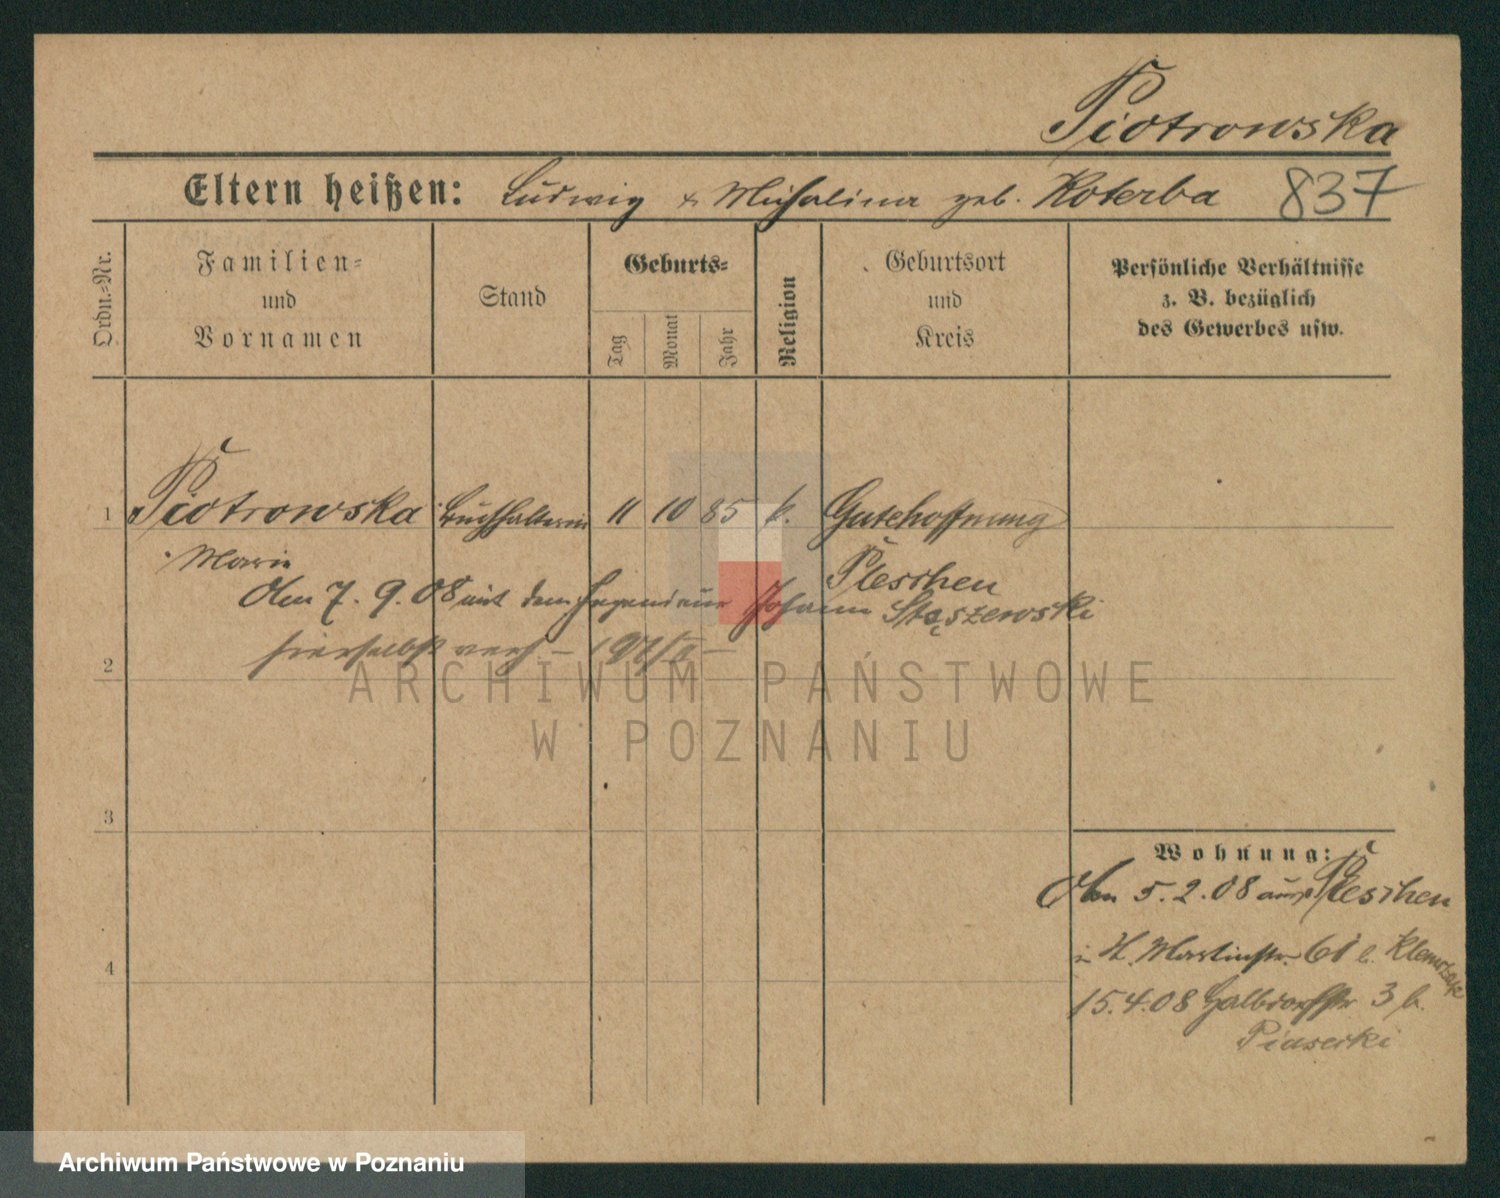 Piotrowska
Eltern heißen: Ludwig & Michalina geb. Koterba 837
Ordn.-Nr.
Familien-
und
Vornamen
Stand
Geburts-
Tag
Monat
Jahr
Religion
Geburtsort
und
Kreis
Persönliche Verhältnisse
z. B. bezüglich
des Gewerbes usw.
1 Piotrowska Buchhalterin 11 10 85 k. Gutehoffnung
Marie Pleschen
Am 7. 9. 08 mit dem Ingenieur Johann Stączewski
hierselbst verh.
2
ARCHIWUM PAŃSTWOWE
W POZNANIU
3
Wohnung:
Am 5.2.08 aus Pleschen
4
in St. Martinstr. 61 b.
15.4.08 Halbdorfstr 3 b.
Piasecki
Archiwum Państwowe w Poznaniu